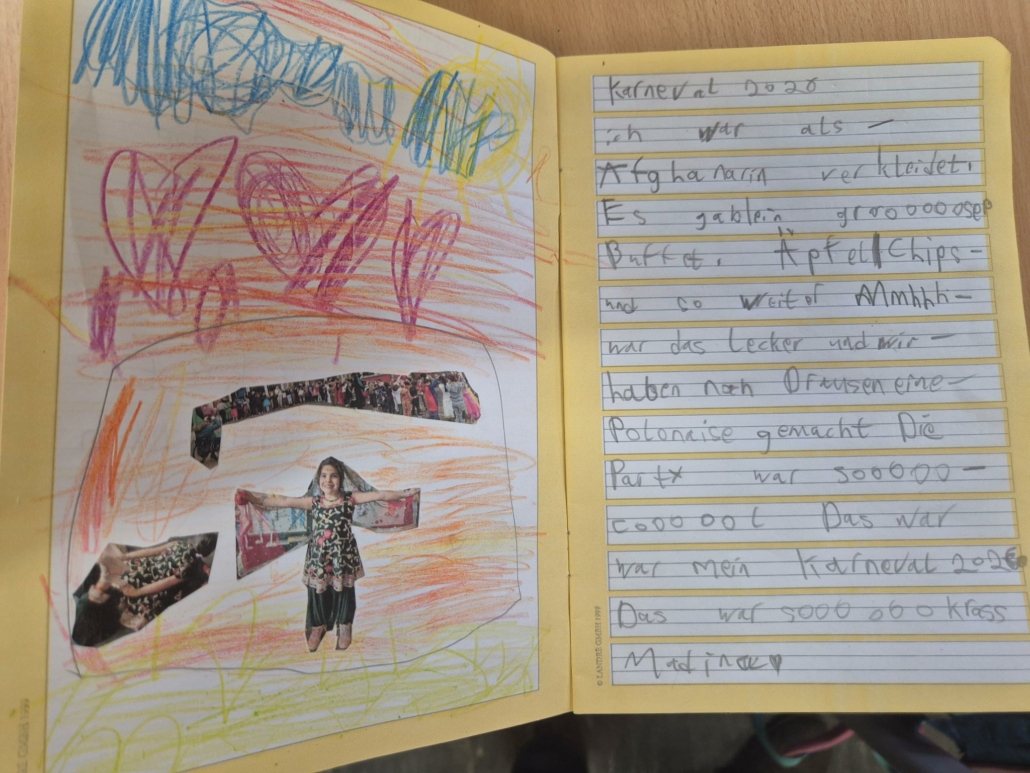 Karneval 2026
ich war als –
Afghanarin verkleidet.
Es gablein groooooosep
Buffet. Äpfel Chips –
und so weiter Mmhhh –
war das Lecker und wir –
haben noch Drausen eine –
Polonaise gemacht Die
Party war soooooo –
coooool Das war
war mein Karneval 2026
Das war sooooookrass
Madina ♥
© LANDRÉ GMBH 1999